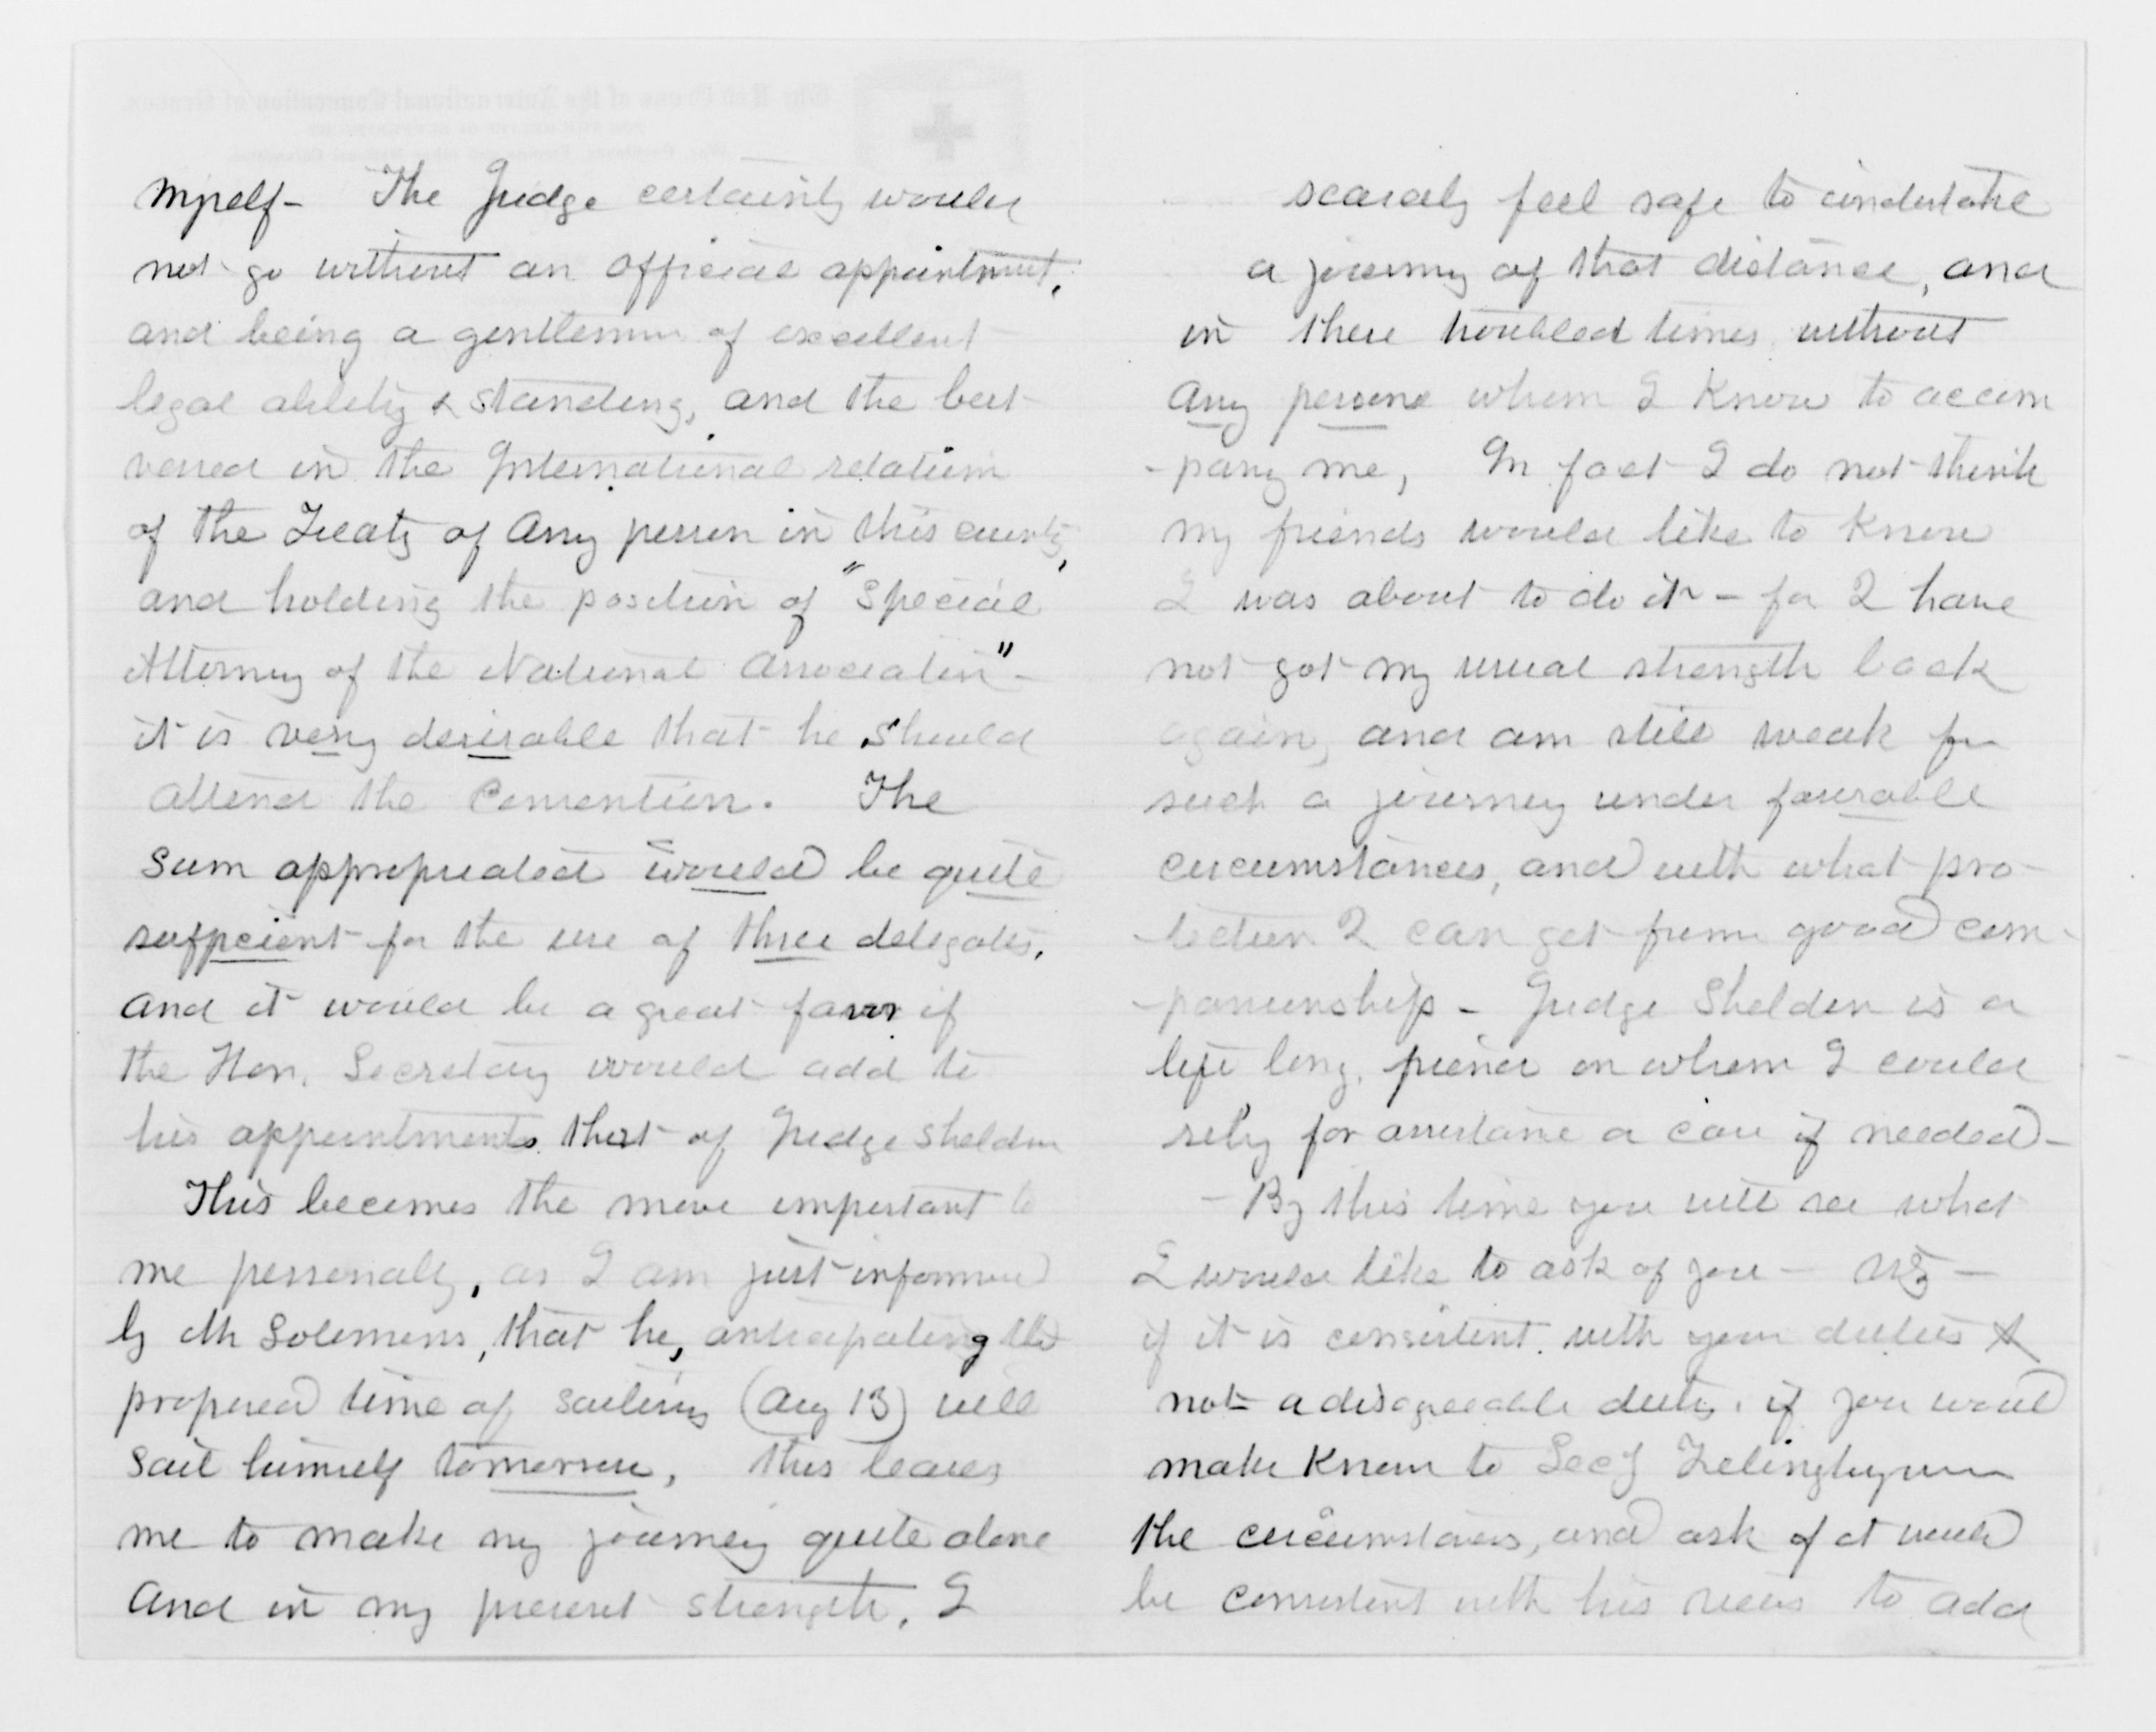 myself - The Judge certainly would
not go without an official appointment,
and being a gentleman of excellent
legal ability & standing, and the best
versed in the International relation
of the Treaty of any person in this country,
and holding the position of "Special
Attorney of the National Association" -
it is very desirable that he should
attend the Convention. The
sum appropriated would be quite
sufficient for the use of three delegates,
and it would be a great favor if
the Hon. Secretary would add to
his appointments that of Judge Sheldon
This becomes the more important to
me personally, as I am just informed
by Mr Solomons, that he, anticipating the
proposed time of sailing (Aug 13) will
sail himself tomorrow, this leaves
me to make my journey quite alone
and in my present strength, I
scarcely feel safe to undertake
a journey of that distance, and
in these troubled times without
any persons whom I know to accom
-pany me, In fact I do not think
my friends would like to know
I was about to do it - for I have
not got my usual strength back
again, and am still weak for
such a journey under favorable
circumstances, and with what pro-
-tection I can get from good com-
-panionship - Judge Sheldon is a
life long, friend on whom I could
rely for assistance a care if needed -
- By this time you will see what
I would like to ask of you - viz -
if it is consistent with your duties &
not a disagreeable duty, if you would
make known to Secy Frelinghuysen
the circumstances, and ask if it would
be consistent with his views to add